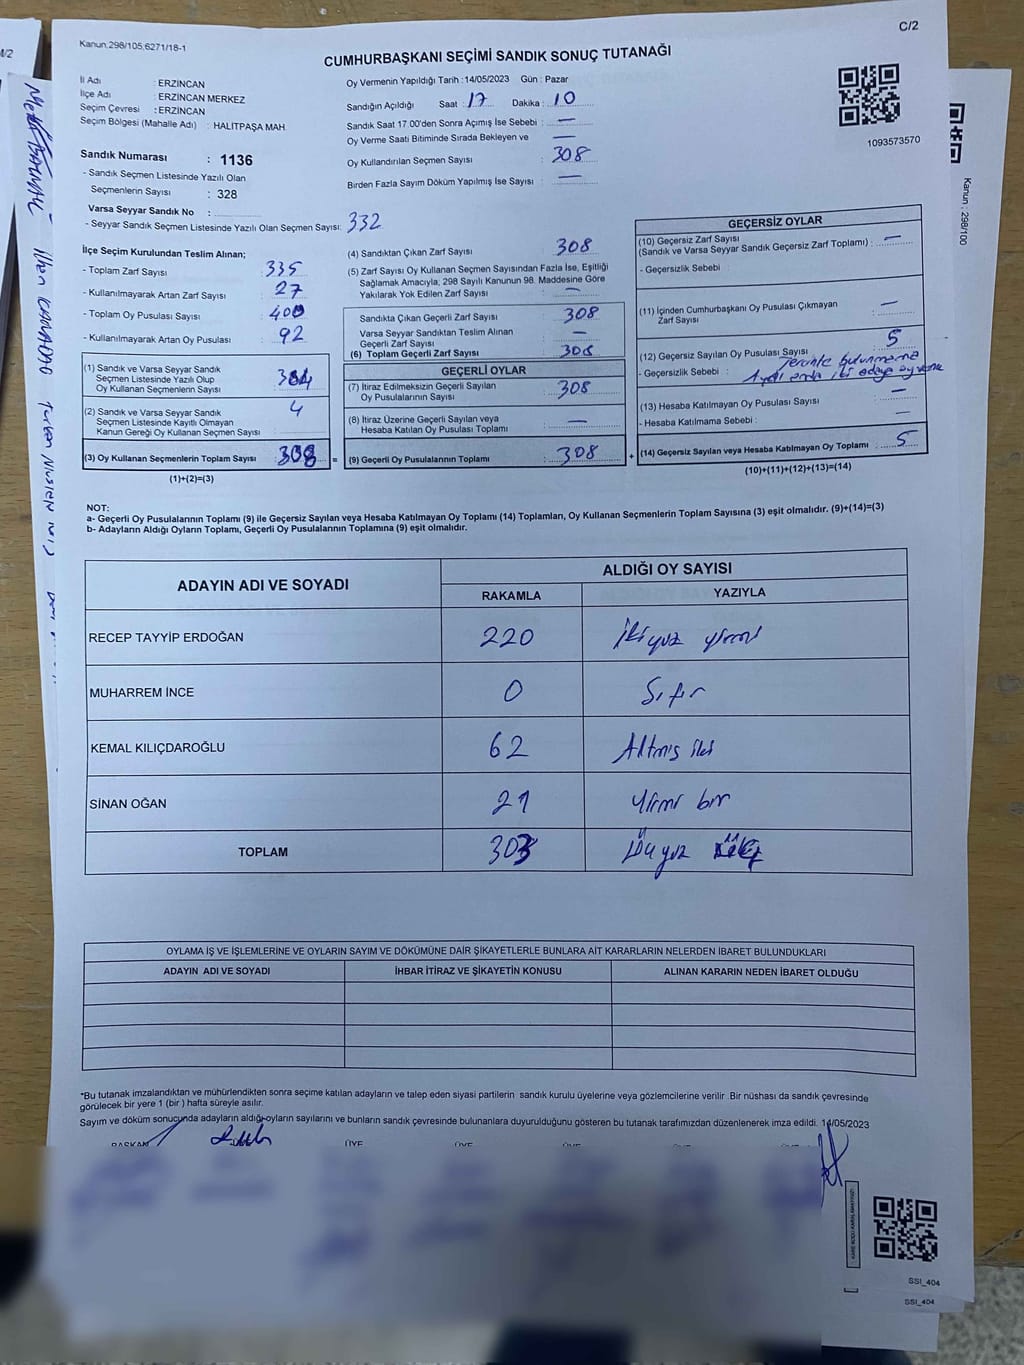 C/2
Kanun.298/105;6271/18-1
CUMHURBAŞKANI SEÇİMİ SANDIK SONUÇ TUTANAĞI
İl Adı : ERZİNCAN
İlçe Adı : ERZİNCAN MERKEZ
Seçim Çevresi : ERZİNCAN
Seçim Bölgesi (Mahalle Adı) : HALİTPAŞA MAH.
Sandık Numarası : 1136
- Sandık Seçmen Listesinde Yazılı Olan
Seçmenlerin Sayısı : 328
Varsa Seyyar Sandık No :
- Seyyar Sandık Seçmen Listesinde Yazılı Olan Seçmen Sayısı: 332
Oy Vermenin Yapıldığı Tarih :14/05/2023 Gün : Pazar
Sandığın Açıldığı Saat : 17 Dakika : 10
Sandık Saat 17.00'den Sonra Açımış İse Sebebi : —
Oy Verme Saati Bitiminde Sırada Bekleyen ve —
Oy Kullandırılan Seçmen Sayısı : 308
Birden Fazla Sayım Döküm Yapılmış İse Sayısı : —
1093573570
Kanun : 298/100
İlçe Seçim Kurulundan Teslim Alınan;
- Toplam Zarf Sayısı : 335
- Kullanılmayarak Artan Zarf Sayısı : 27
- Toplam Oy Pusulası Sayısı : 400
- Kullanılmayarak Artan Oy Pusulası : 92
(1) Sandık ve Varsa Seyyar Sandık
Seçmen Listesinde Yazılı Olup
Oy Kullanan Seçmenlerin Sayısı : 304
(2) Sandık ve Varsa Seyyar Sandık 4
Seçmen Listesinde Kayıtlı Olmayan
Kanun Gereği Oy Kullanan Seçmen Sayısı :
(3) Oy Kullanan Seçmenlerin Toplam Sayısı : 308 =
(1)+(2)=(3)
(4) Sandıktan Çıkan Zarf Sayısı : 308
(5) Zarf Sayısı Oy Kullanan Seçmen Sayısından Fazla İse, Eşitliği
Sağlamak Amacıyla, 298 Sayılı Kanunun 98. Maddesine Göre
Yakılarak Yok Edilen Zarf Sayısı : —
Sandıkta Çıkan Geçerli Zarf Sayısı : 308
Varsa Seyyar Sandıktan Teslim Alınan
Geçerli Zarf Sayısı : —
(6) Toplam Geçerli Zarf Sayısı : 308
GEÇERLİ OYLAR
(7) İtiraz Edilmeksizin Geçerli Sayılan
Oy Pusulasının Sayısı : 308
(8) İtiraz Üzerine Geçerli Sayılan veya
Hesaba Katılan Oy Pusulası Toplamı : —
(9) Geçerli Oy Pusulalarının Toplamı : 308 +
GEÇERSİZ OYLAR
(10) Geçersiz Zarf Sayısı
(Sandık ve Varsa Seyyar Sandık Geçersiz Zarf Toplamı) : —
- Geçersizlik Sebebi :
(11) İçinden Cumhurbaşkanı Oy Pusulası Çıkmayan
Zarf Sayısı : —
(12) Geçersiz Sayılan Oy Pusulası Sayısı : 5
- Geçersizlik Sebebi : Tercihte bulunmama
Aynı anda iki adaya oy verme
(13) Hesaba Katılmayan Oy Pusulası Sayısı : —
- Hesaba Katılmama Sebebi : —
(14) Geçersiz Sayılan veya Hesaba Katılmayan Oy Toplamı : 5
(10)+(11)+(12)+(13)=(14)
NOT:
a- Geçerli Oy Pusulalarının Toplamı (9) ile Geçersiz Sayılan veya Hesaba Katılmayan Oy Toplamı (14) Toplamları, Oy Kullanan Seçmenlerin Toplam Sayısına (3) eşit olmalıdır. (9)+(14)=(3)
b- Adayların Aldığı Oyların Toplamı, Geçerli Oy Pusulalarının Toplamına (9) eşit olmalıdır.
ADAYIN ADI VE SOYADI
ALDIĞI OY SAYISI
RAKAMLA YAZIYLA
RECEP TAYYİP ERDOĞAN 220 İkiyüz yirmi
MUHARREM İNCE 0 Sıfır
KEMAL KILIÇDAROĞLU 62 Altmış iki
SİNAN OĞAN 21 Yirmi bir
TOPLAM 303 Üçyüz
OYLAMA İŞ VE İŞLEMLERİNE VE OYLARIN SAYIM VE DÖKÜMÜNE DAİR ŞİKAYETLERLE BUNLARA AİT KARARLARIN NELERDEN İBARET BULUNDUKLARI
ADAYIN ADI VE SOYADI İHBAR İTİRAZ VE ŞİKAYETİN KONUSU ALINAN KARARIN NEDEN İBARET OLDUĞU
*Bu tutanak imzalandıktan ve mühürlendikten sonra seçime katılan adayların ve talep eden siyasi partilerin sandık kurulu üyelerine veya gözlemcilerine verilir .Bir nüshası da sandık çevresinde
görülecek bir yere 1 (bir ) hafta süreyle asılır.
Sayım ve döküm sonucunda adayların aldığı oyların sayılarını ve bunların sandık çevresinde bulunanlara duyurulduğunu gösteren bu tutanak tarafımızdan düzenlenerek imza edildi. 14/05/2023
BAŞKAN ÜYE ÜYE ÜYE ÜYE
SSİ_404
SSİ_404